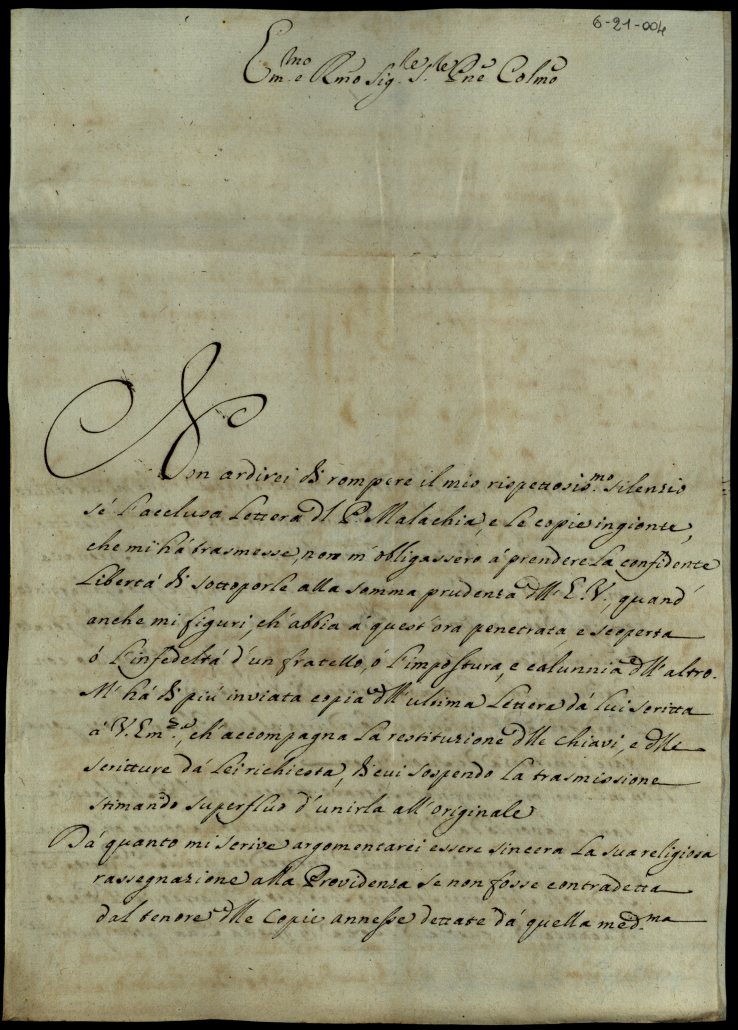 6-21-004
Em.mo e Rmo Sig.re S.re Pne Colmo
Non ardirei di rompere il mio rispettosis.mo silenzio
sé l'acclusa Lettera dl P. Malachia, e le copie ingionte,
che mi há trasmesse, non m'obligassero á prendere la confidente
libertá di sottoporle alla somma prudenza dll' E. V., quand'
anche mi figuri, ch' abbia á quest' ora penetrata e scoperta
ó l'infedeltá d'un fratello, ó l'impostura, e calunnia dll' altro.
M' há di piú inviata copia dll' ultima Lettera dá lui scritta
á V. Em.za, ch' accompagna la restituzione dlle chiavi, e dlle
scritture dá Lei richiesta, di cui sospendo la trasmissione
stimando superfluo d'unirla all' originale
Dá quanto mi scrive argomentarei essere sincera la sua religiosa
rassegnazione alla Providenza se non fosse contradetta
dal tenore dlle copie annesse dettate dá quella med.ma